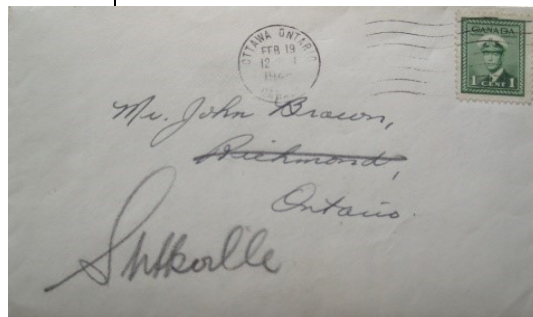 OTTAWA ONTARIO
FEB 19
12
CANADA
1 CENT 1
Mr. John Brown,
Richmond,
Ontario.